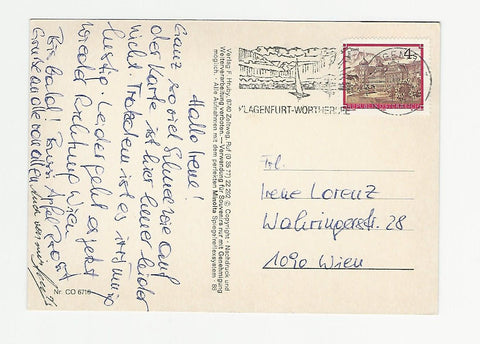 Hallo Irene!
Ganz so viel Schnee wie auf
der Karte ist hier heuer leider
nicht. Trotzdem ist es irrsinnig
lustig. Leider geht es jetzt
wieder Richtung Wien.
Bis Bald! Bussi
Grüße an alle von allen
Verlag F. Hruby, 8740 Zeltweg, Ruf (0 35 77) 22 202 © Copyright - Nachdruck und
Weiterverarbeitung verboten. — Verwendung für Souvenirs nur mit Genehmigung
möglich. Alle Aufnahmen mit dem perfekten Minolta Spiegelreflexsystem
Nr. CO 6716
KLAGENFURT-WÖRTHERSEE
4
REPUBLIK ÖSTERREICH
Frl.
Irene Lorenz
Währingerstr. 28
1090 Wien